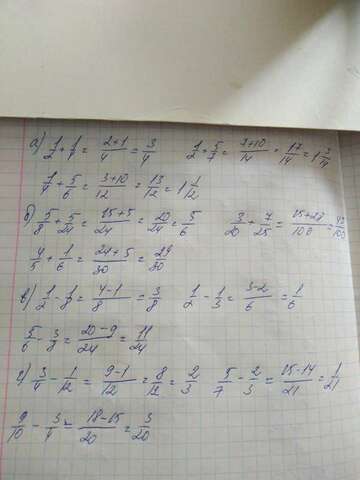 а) 1/2 + 1/4 = (2+1)/4 = 3/4   1/2 + 5/7 = (7+10)/14 = 17/14 = 1 3/14
1/4 + 5/6 = (3+10)/12 = 13/12 = 1 1/12
б) 5/8 + 5/24 = (15+5)/24 = 20/24 = 5/6   3/20 + 7/25 = (15+28)/100 = 43/100
4/5 + 1/6 = (24+5)/30 = 29/30
в) 1/2 - 1/8 = (4-1)/8 = 3/8   1/2 - 1/3 = (3-2)/6 = 1/6
5/6 - 3/8 = (20-9)/24 = 11/24
г) 3/4 - 1/12 = (9-1)/12 = 8/12 = 2/3   5/7 - 2/3 = (15-14)/21 = 1/21
9/10 - 3/4 = (18-15)/20 = 3/20